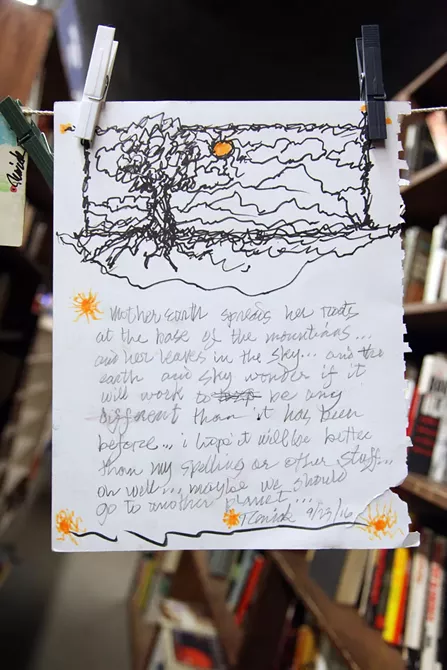 mother earth spreds her roots
at the base of the mountians...
and her leaves in the sky... and the
earth and sky wonder if it
will work to be any
different than it has been
before... i hope it will be better
than my spelling or other stuff...
oh well... maybe we should
go to another planet...
9/23/16